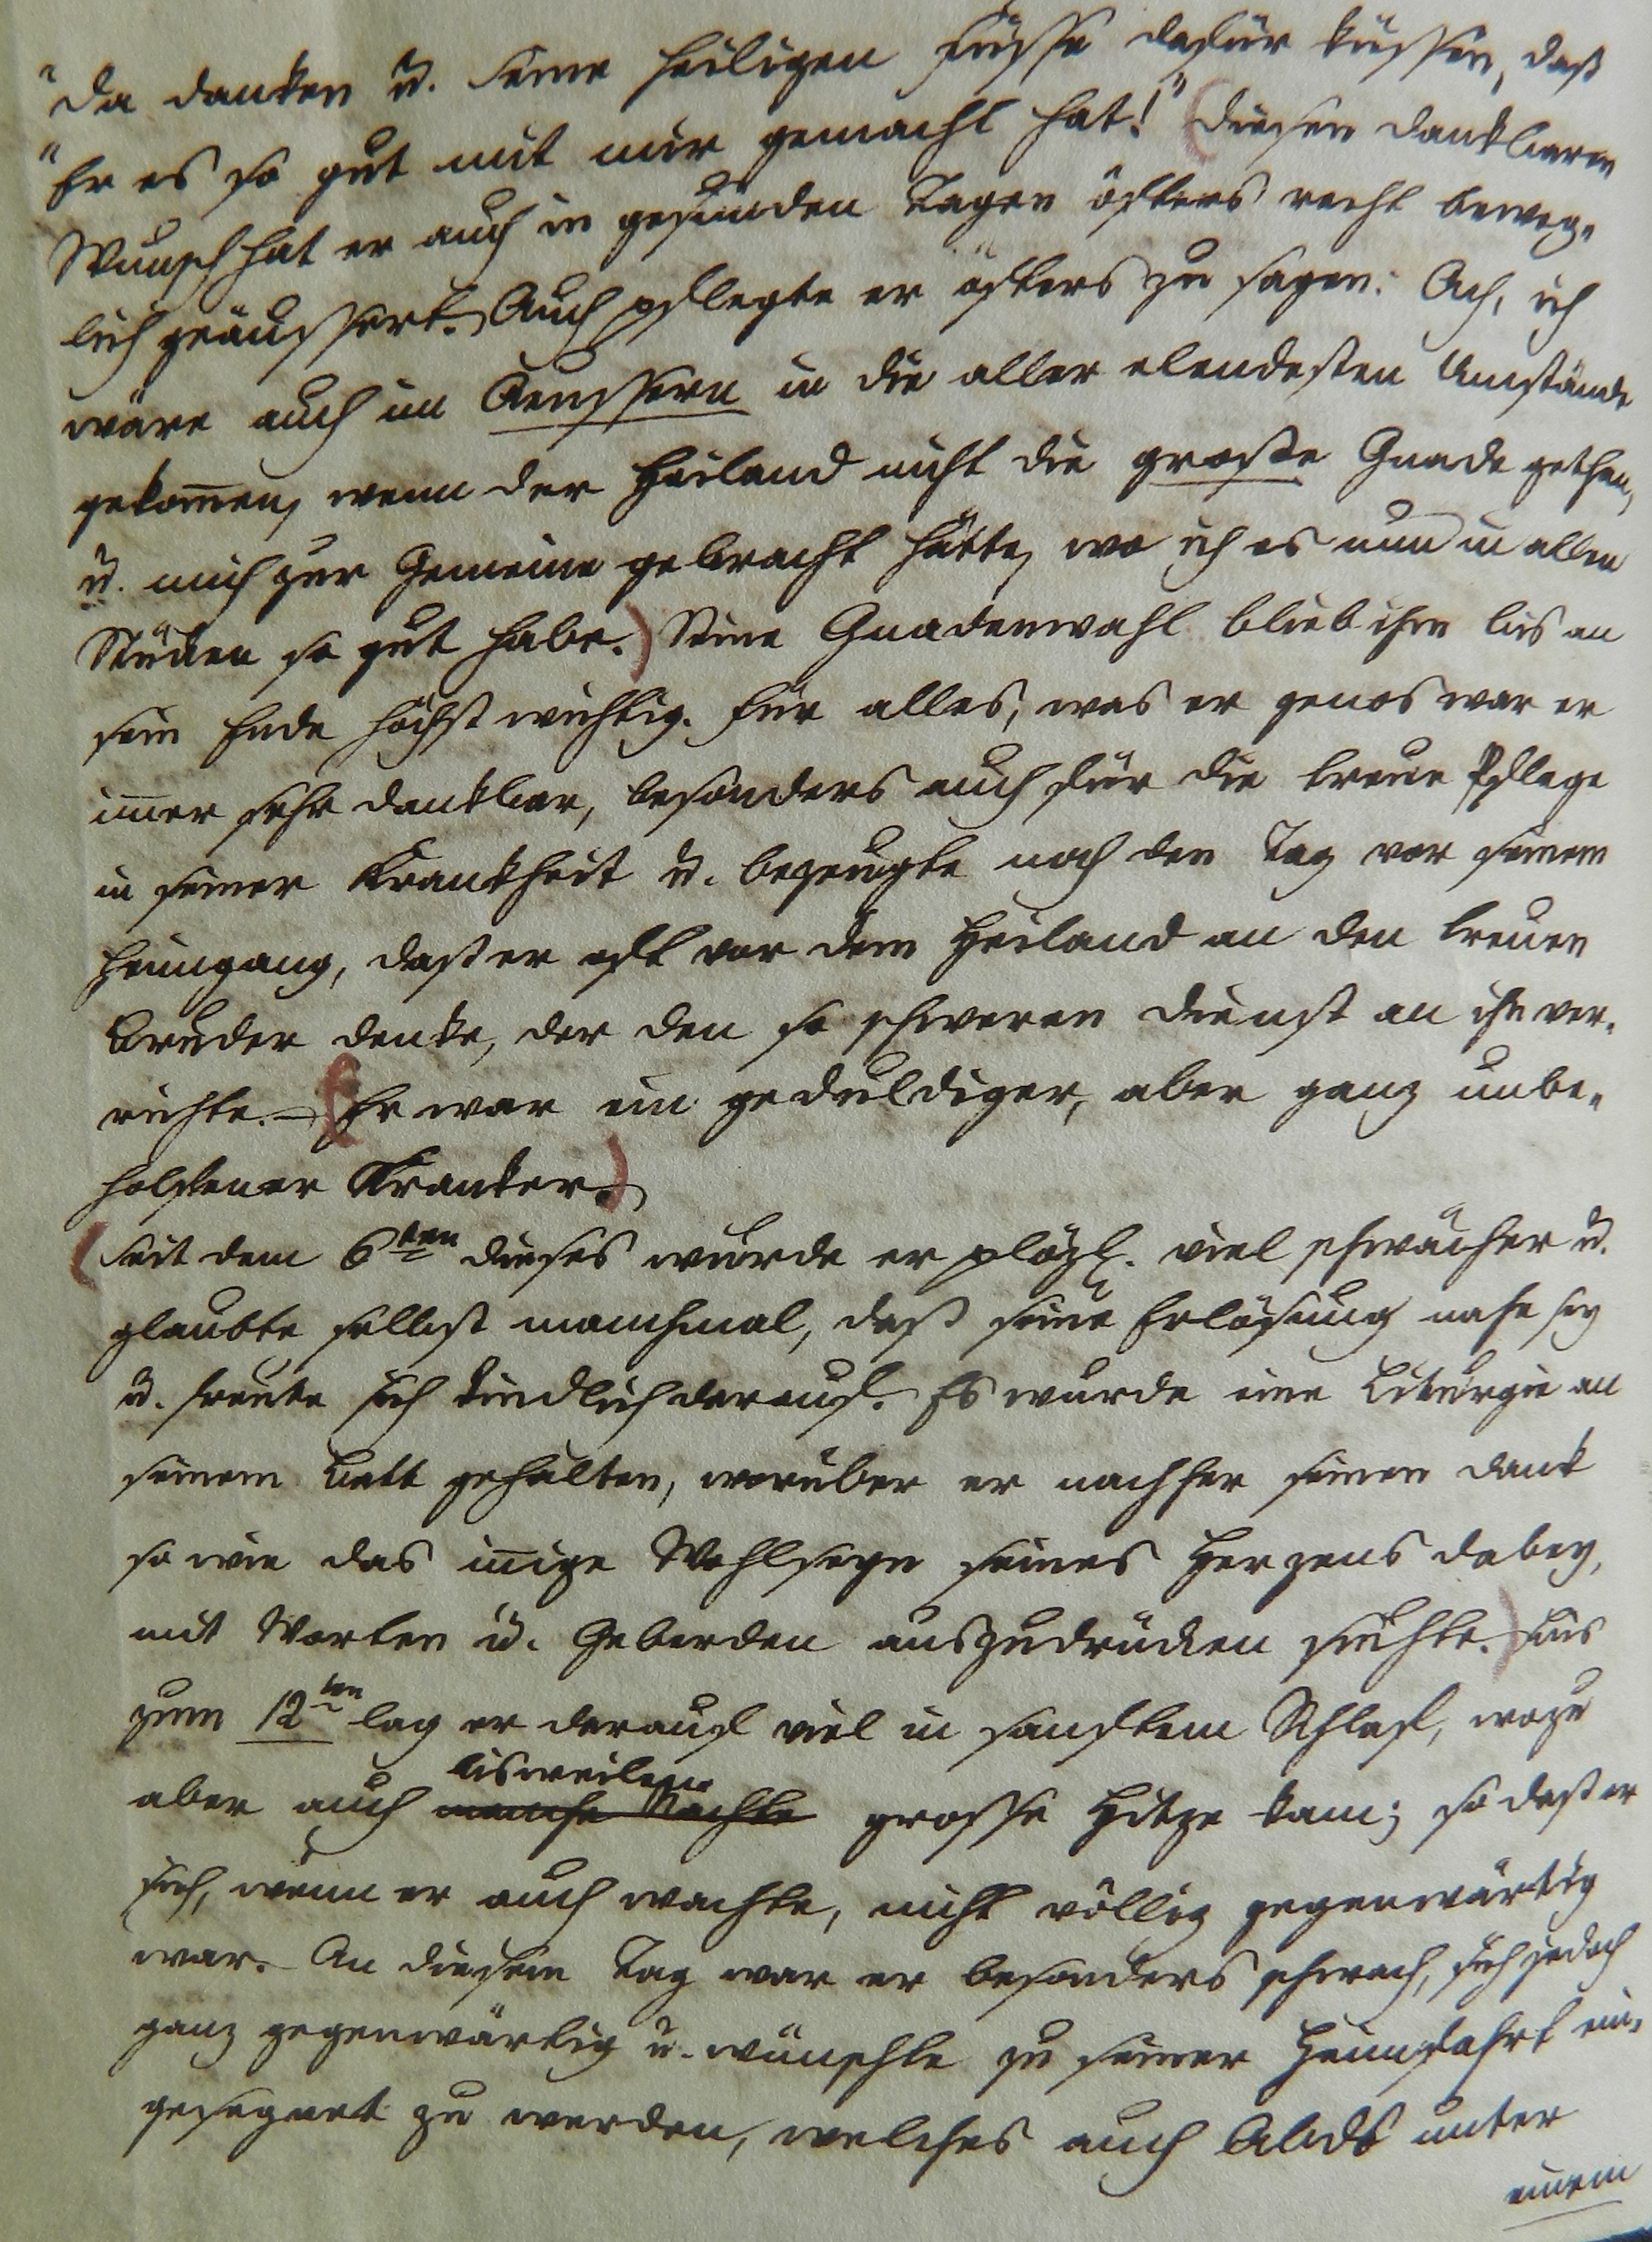 "da danken u. seine heiligen Füsse dafür küssen, daß
"Er es so gut mit mir gemacht hat!" (Diesen dankbaren
Wunsch hat er auch in gesunden Tagen öfters recht beweg-
lich geäussert. Auch pflegte er öfters zu sagen: Ach, ich
wäre auch im Aeussern in die aller elendesten Umstände
gekom̅en, wenn der Heiland nicht die große Gnade gethan,
u. mich zur Gemeine gebracht hätte, wo ich es nun in allen
Stücken so gut habe.) Seine Gnadenwahl blieb ihm bis an
sein Ende höchst wichtig. Für alles, was er genos war er
im̅er sehr dankbar, besonders auch für die treue Pflege
in seiner Krankheit u. bezeugte noch den Tag vor seinem
Heimgang, daß er oft vor dem Heiland an den treuen
Bruder denke, der den so schweren Dienst an ihm ver-
richte. – (Er war ein geduldiger, aber ganz unbe-
holfener Kranker.)
(Seit dem 6ten dieses wurde er plözl. viel schwächer u.
glaubte selbst manchmal, daß seine Erlösung nahe sey
u. freute sich kindlich darauf. Es wurde eine Liturgie an
seinem Bett gehalten, worüber er nachher seinen Dank
so wie das in̅ige Wohlseyn seines Herzens dabey,
mit Worten u. Geberden auszudrücken suchte.) Bis
zum 12ten lag er darauf viel in sanftem Schlaf, wozu
bisweilen
aber auch manche Nächte grosse Hitze kam; so daß er
sich, wenn er auch wachte, nicht völlig gegenwärtig
war. An diesem Tag war er besonders schwach, sich jedoch
ganz gegenwärtig u. wünschte zu seiner Heimfahrt ein-
gesegnet zu werden, welches auch Abds unter
einem